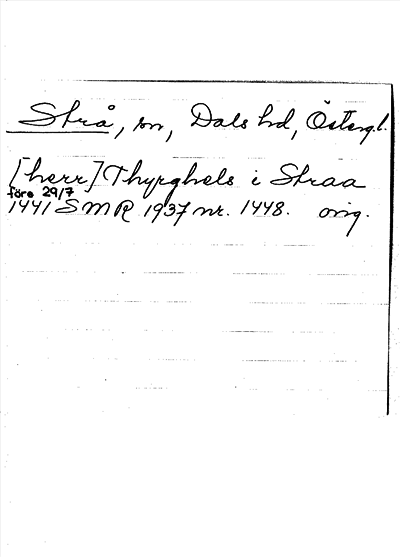 Strå, sn, Dals hd, Österg.l.
[herr] Thyrghels i Straa
före 29/7
1441 SMR 1937 nr. 1448. orig.